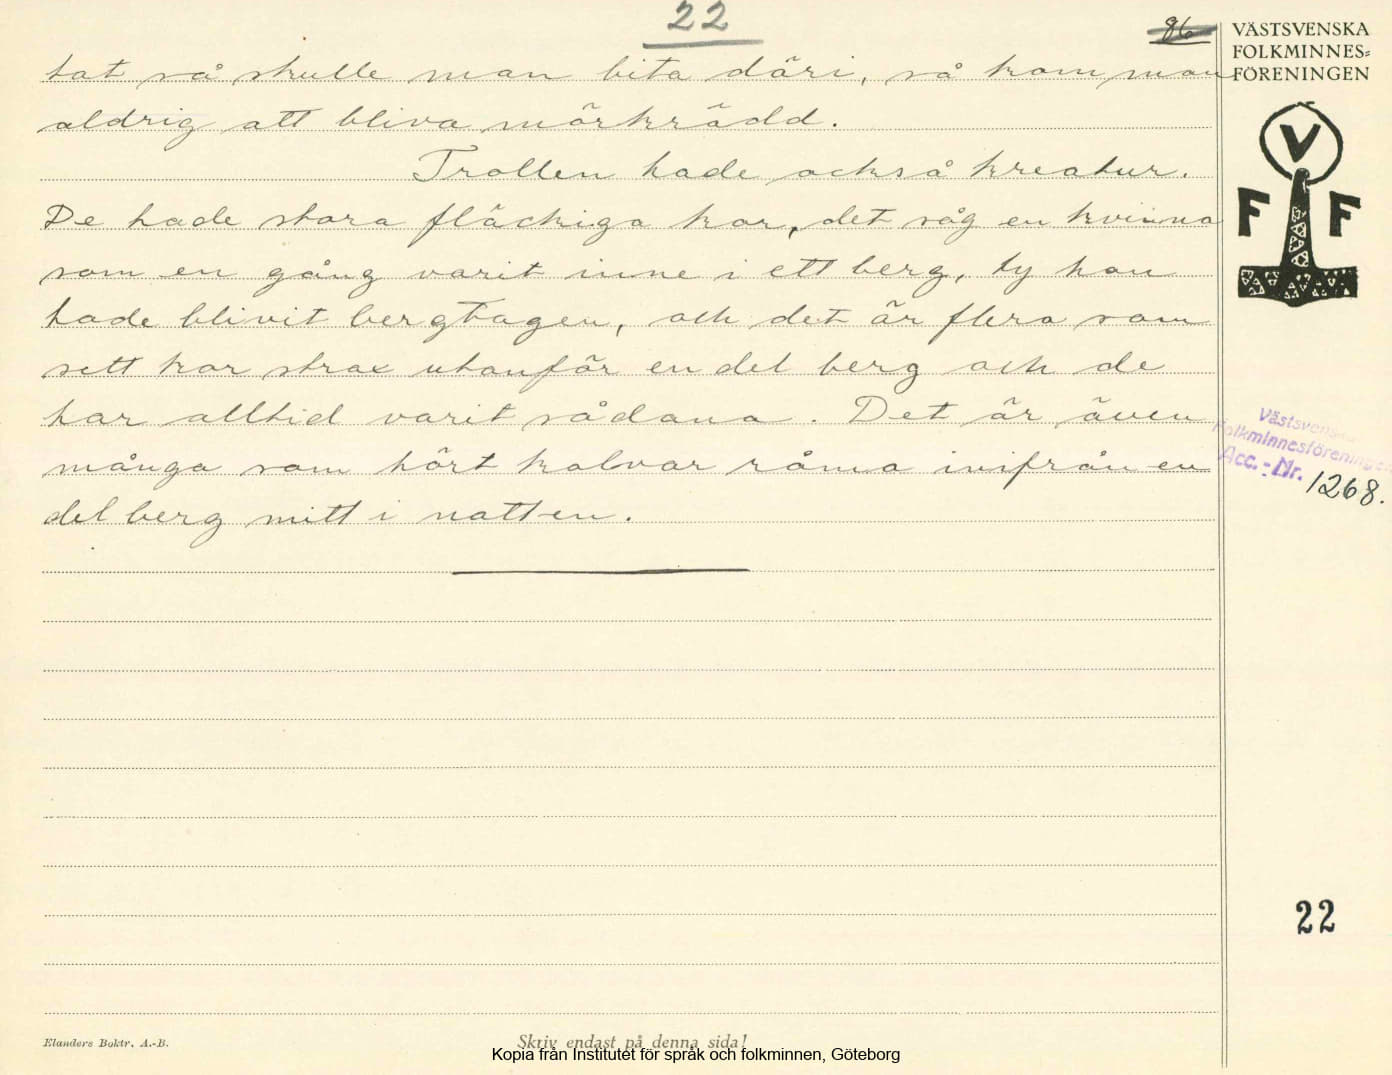 22
86
VÄSTSVENSKA
FOLKMINNES=
FÖRENINGEN
tat så skulle man bita däri, så kom man
aldrig att bliva mörkrädd.
Trollen hade också kreatur.
De hade stora fläckiga kor, det såg en kvinna
som en gång varit inne i ett berg, ty hon
hade blivit bergtagen, och det är flera som
sett kor strax utanför en del berg och de
har alltid varit sådana. Det är även
många som hört kalvar råma inifrån en
del berg mitt i natten.
V
F F
Västsvenska
Folkminnesföreningen
Acc.-Nr. 1268.
22
Elanders Boktr. A.-B.
Skriv endast på denna sida!
Kopia från Institutet för språk och folkminnen, Göteborg